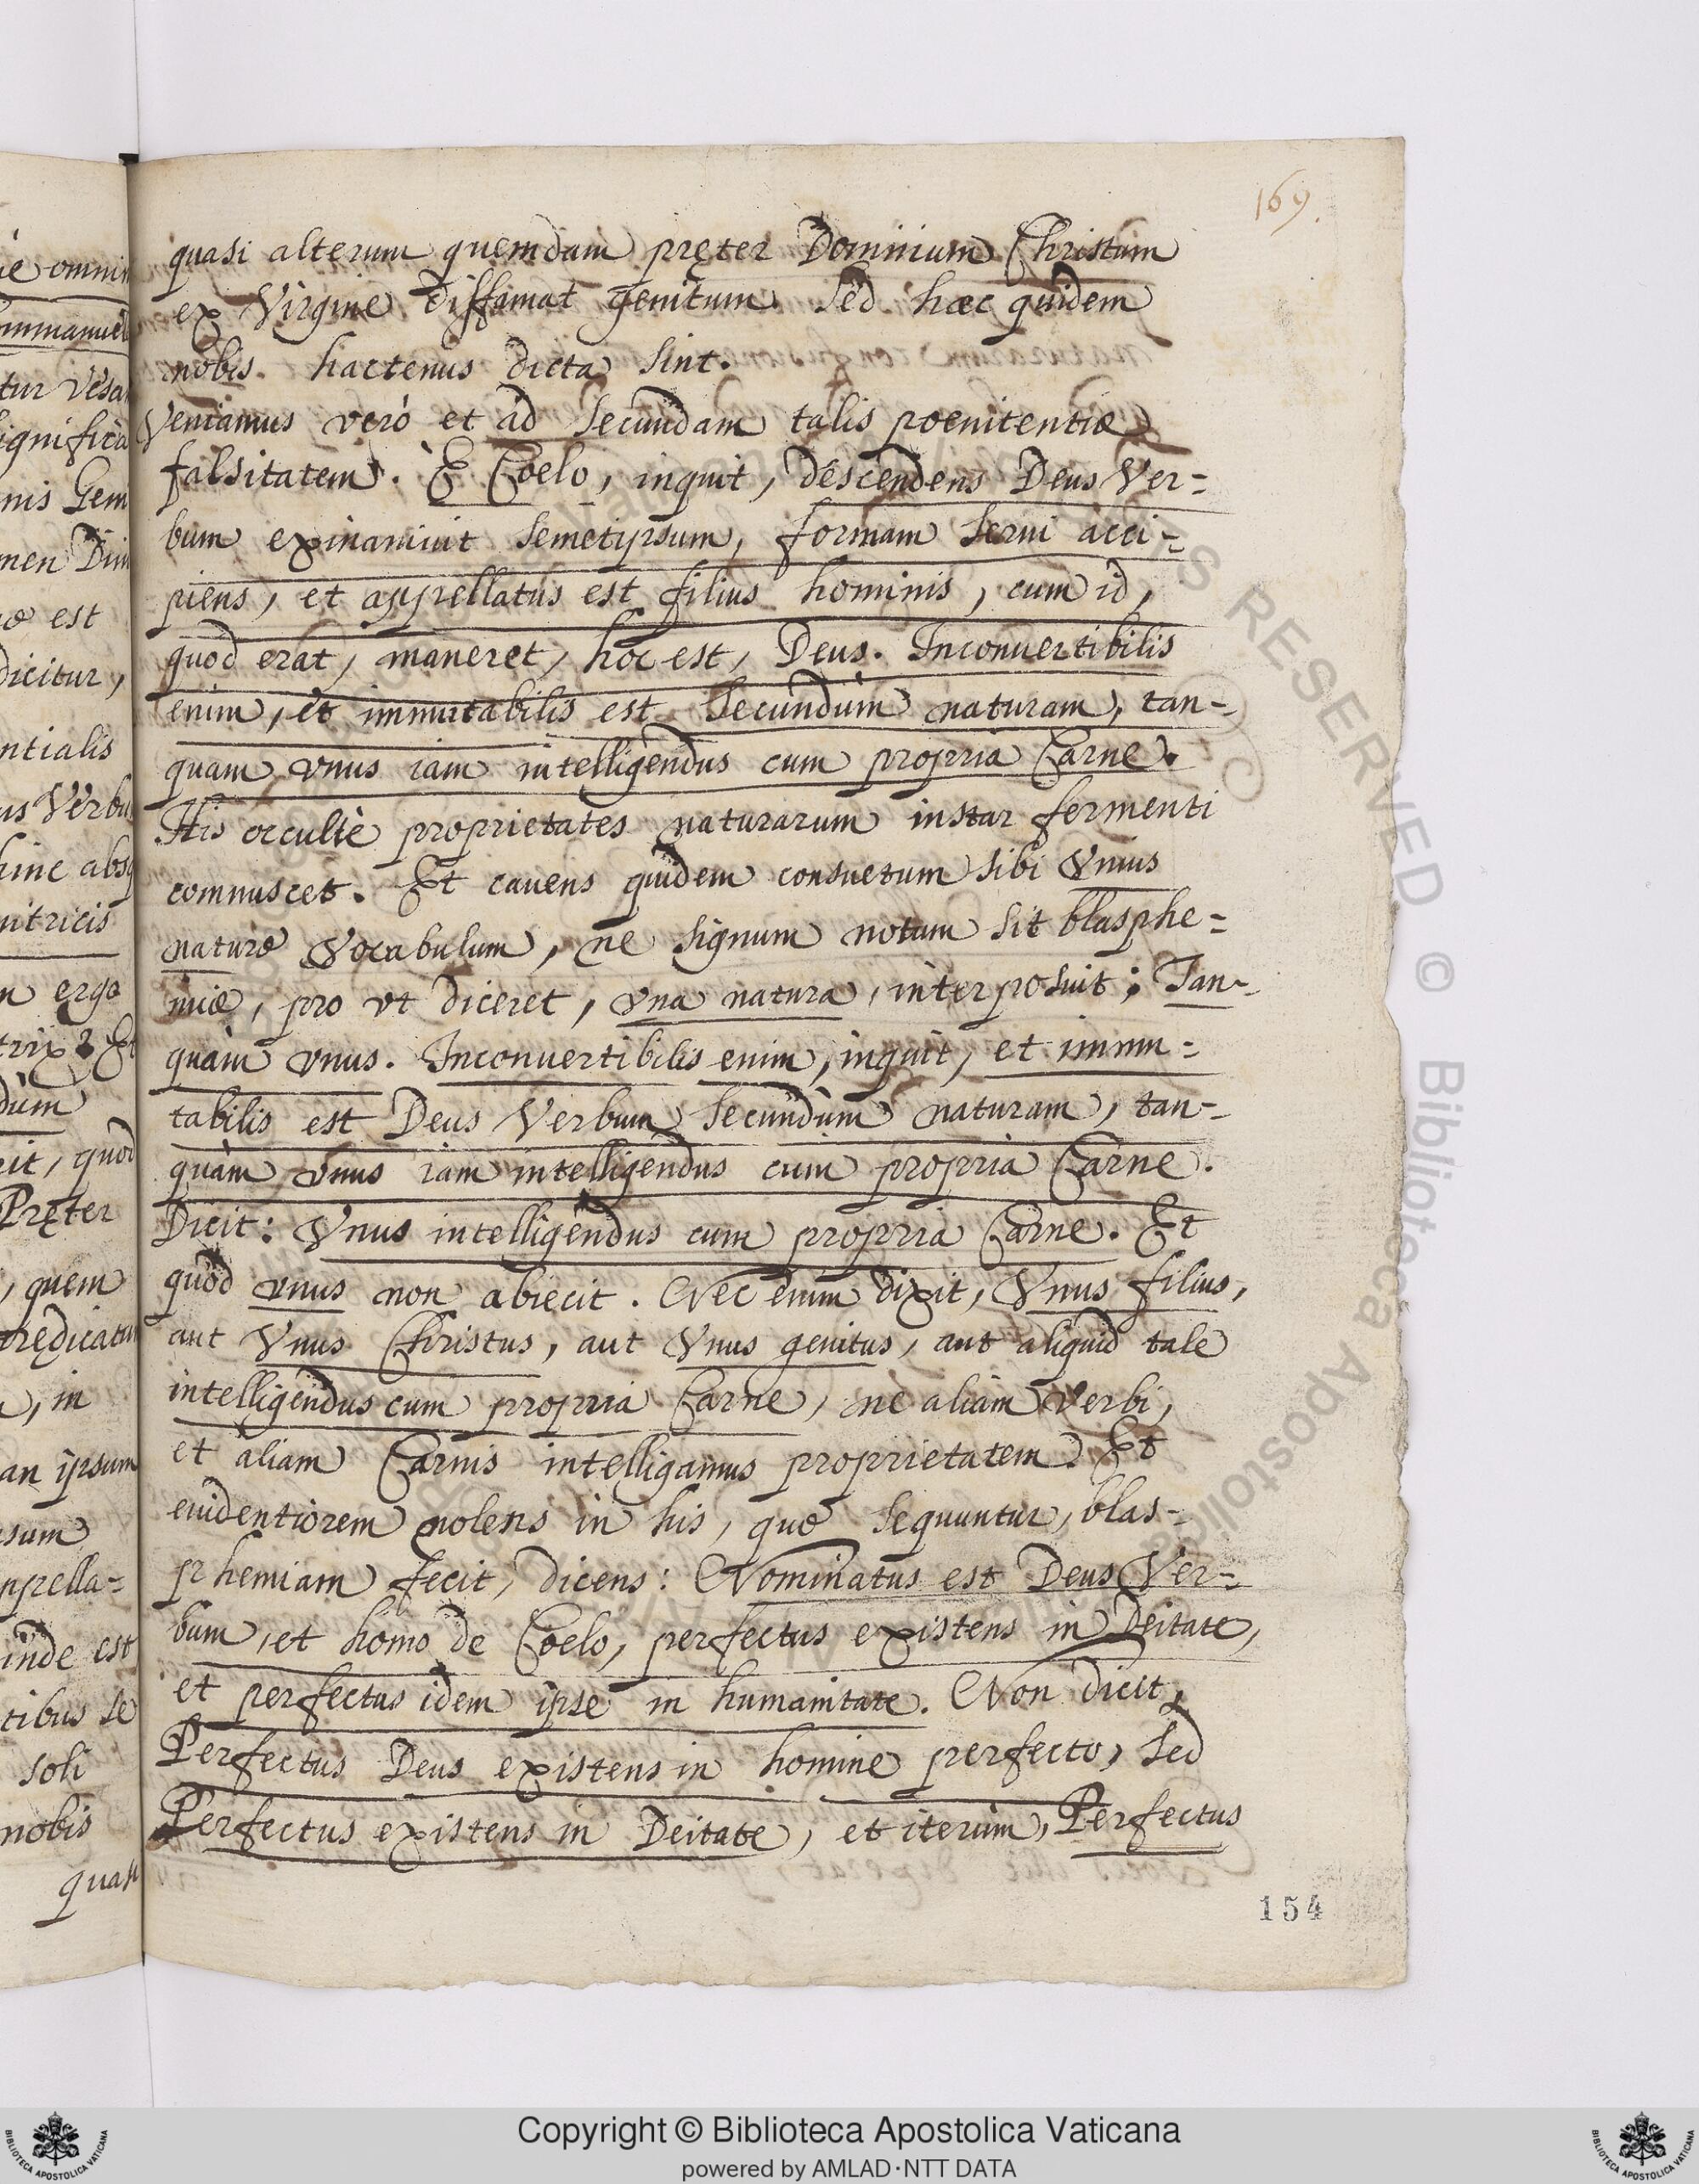 169.
quasi alterum quemdam pręter Dominum Christum
ex Virgine diffamat genitum. Sed hæc quidem
nobis hactenus dicta sint.
Veniamus verò et ad secundam talis poenitentiæ
falsitatem. E Coelo, inquit, descendens Deus Ver=
bum exinaniuit semetipsum, formam serui acci=
piens, et appellatus est filius hominis, cum id,
quod erat, maneret, hoc est, Deus. Inconuertibilis
enim, et immutabilis est secundùm naturam, tan=
quam vnus iam intelligendus cum propria Carne.
His occultè proprietates naturarum instar fermenti
commiscet. Et cauens quidem consuetum sibi Vnius
naturæ Vocabulum, ne signum notum sit blasphe=
miæ, pro vt diceret, vna natura, interposuit; Tan=
quàm vnus. Inconuertibilis enim, inquit, et immu=
tabilis est Deus Verbum secundùm naturam, tan=
quàm vnus iam intelligendus cum propria Carne.
Dicit: Vnus intelligendus cum propria Carne. Et
quod vnus non abiecit. Nec enim dixit, Vnus filius,
aut Vnus Christus, aut Vnus genitus, aut aliquid tale
intelligendus cum propria Carne, ne aliam Verbi,
et aliam Carnis intelligamus proprietatem. Et
euidentiorem nolens in his, quæ sequuntur, blas=
phemiam fecit, dicens: Nominatus est Deus Ver=
bum, et homo de Coelo, perfectus existens in Deitate,
et perfectus idem ipse in humanitate. Non dicit,
Perfectus Deus existens in homine perfecto, sed
Perfectus existens in Deitate, et iterùm, Perfectus
154
Copyright © Biblioteca Apostolica Vaticana
powered by AMLAD·NTT DATA